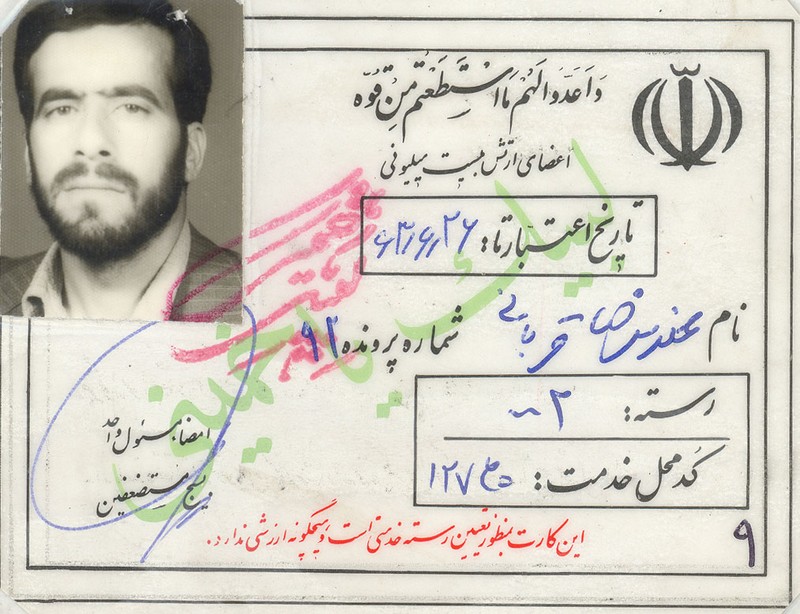 وَاَعِدّوا لَهُم مَا اسْتَطَعْتُم مِنْ قُوَّه
اعضای ارتش بیست میلیونی
تاریخ اعتبار تا: ۶۳/۶/۲۶
نام محمدرضا قربانی
شماره پرونده ۹۲
رسته: ۲
کد محل خدمت: ۱۲۷
امضاء مسئول واحد
بسیج مستضعفین
لبیک یا خمینی
این کارت بمنظور تعیین رسته خدمتی است و هیچگونه ارزشی ندارد.
۹